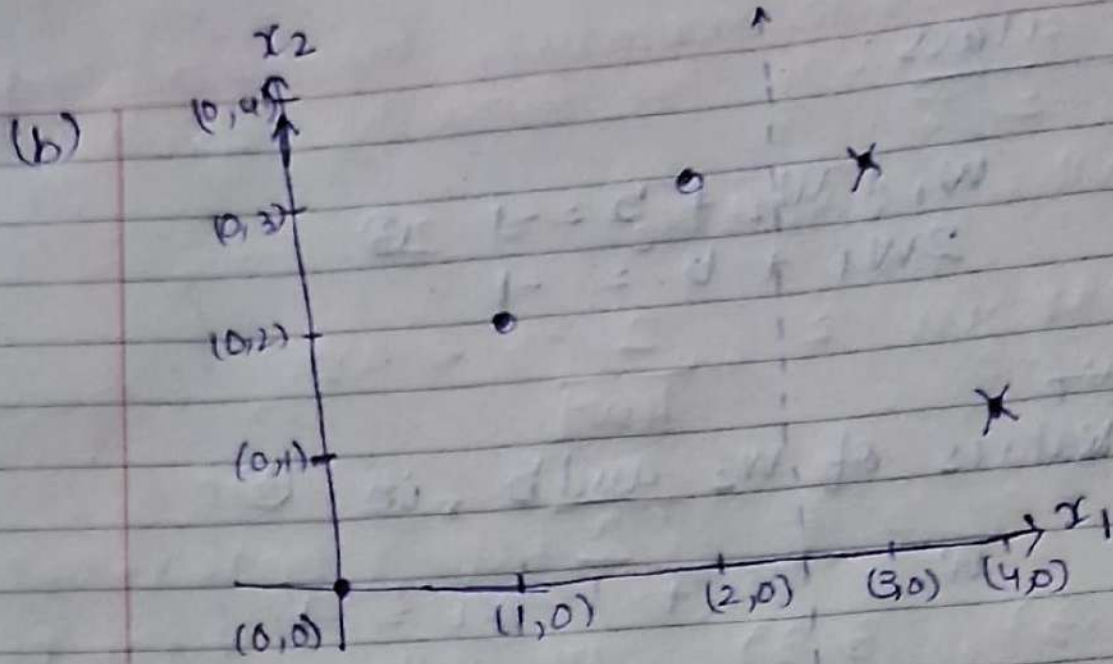 (b)
x2
(0,4)
(0,3)
(0,2)
(0,1)
(0,0)
(1,0)
(2,0)
(3,0)
(4,0)
x1